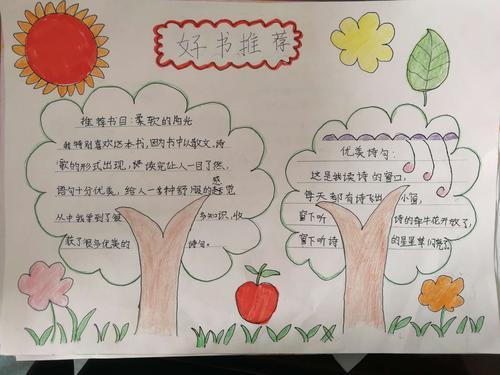 好书推荐
推荐书目:柔软的阳光
我特别喜欢这本书,因为书中以散文、诗
歌的形式出现,读完让人一目了然,
语句十分优美,给人一种舒服的感觉
从中我学到了很多知识,收
获了很多优美的诗句。
优美诗句:
这是我读诗的窗口,
每天都有诗飞出小窗,
窗下听诗的牵牛花开放了,
窗下听诗的星星草